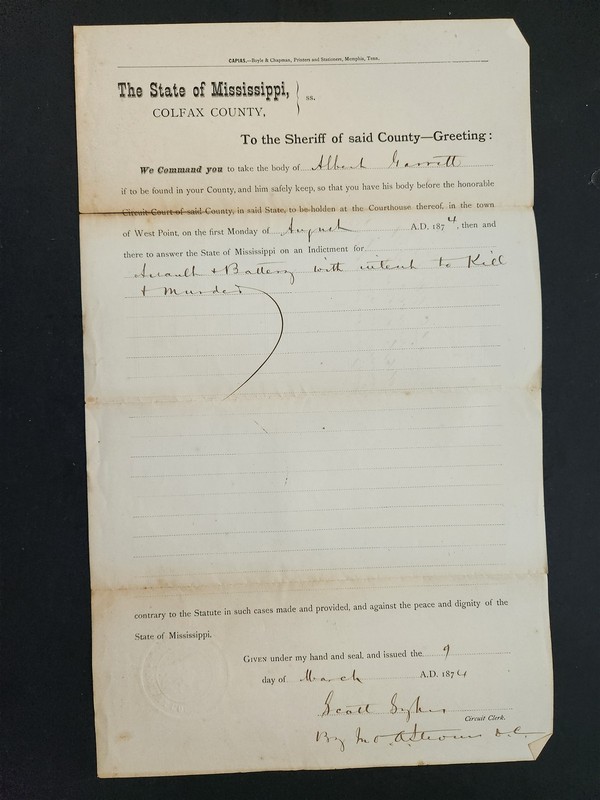 CAPIAS.—Boyle & Chapman, Printers and Stationers, Memphis, Tenn.
The State of Mississippi,
COLFAX COUNTY,
ss.
To the Sheriff of said County—Greeting:
We Command you to take the body of Albert Garrett
if to be found in your County, and him safely keep, so that you have his body before the honorable
Circuit Court of said County, in said State, to be holden at the Courthouse thereof, in the town
of West Point, on the first Monday of August A.D. 1874, then and
there to answer the State of Mississippi on an Indictment for
Assault & Battery with intent to Kill
& Murder
contrary to the Statute in such cases made and provided, and against the peace and dignity of the
State of Mississippi.
GIVEN under my hand and seal, and issued the 9
day of March A.D. 1874
Scott Sykes
Circuit Clerk.
By Jno. D.C.